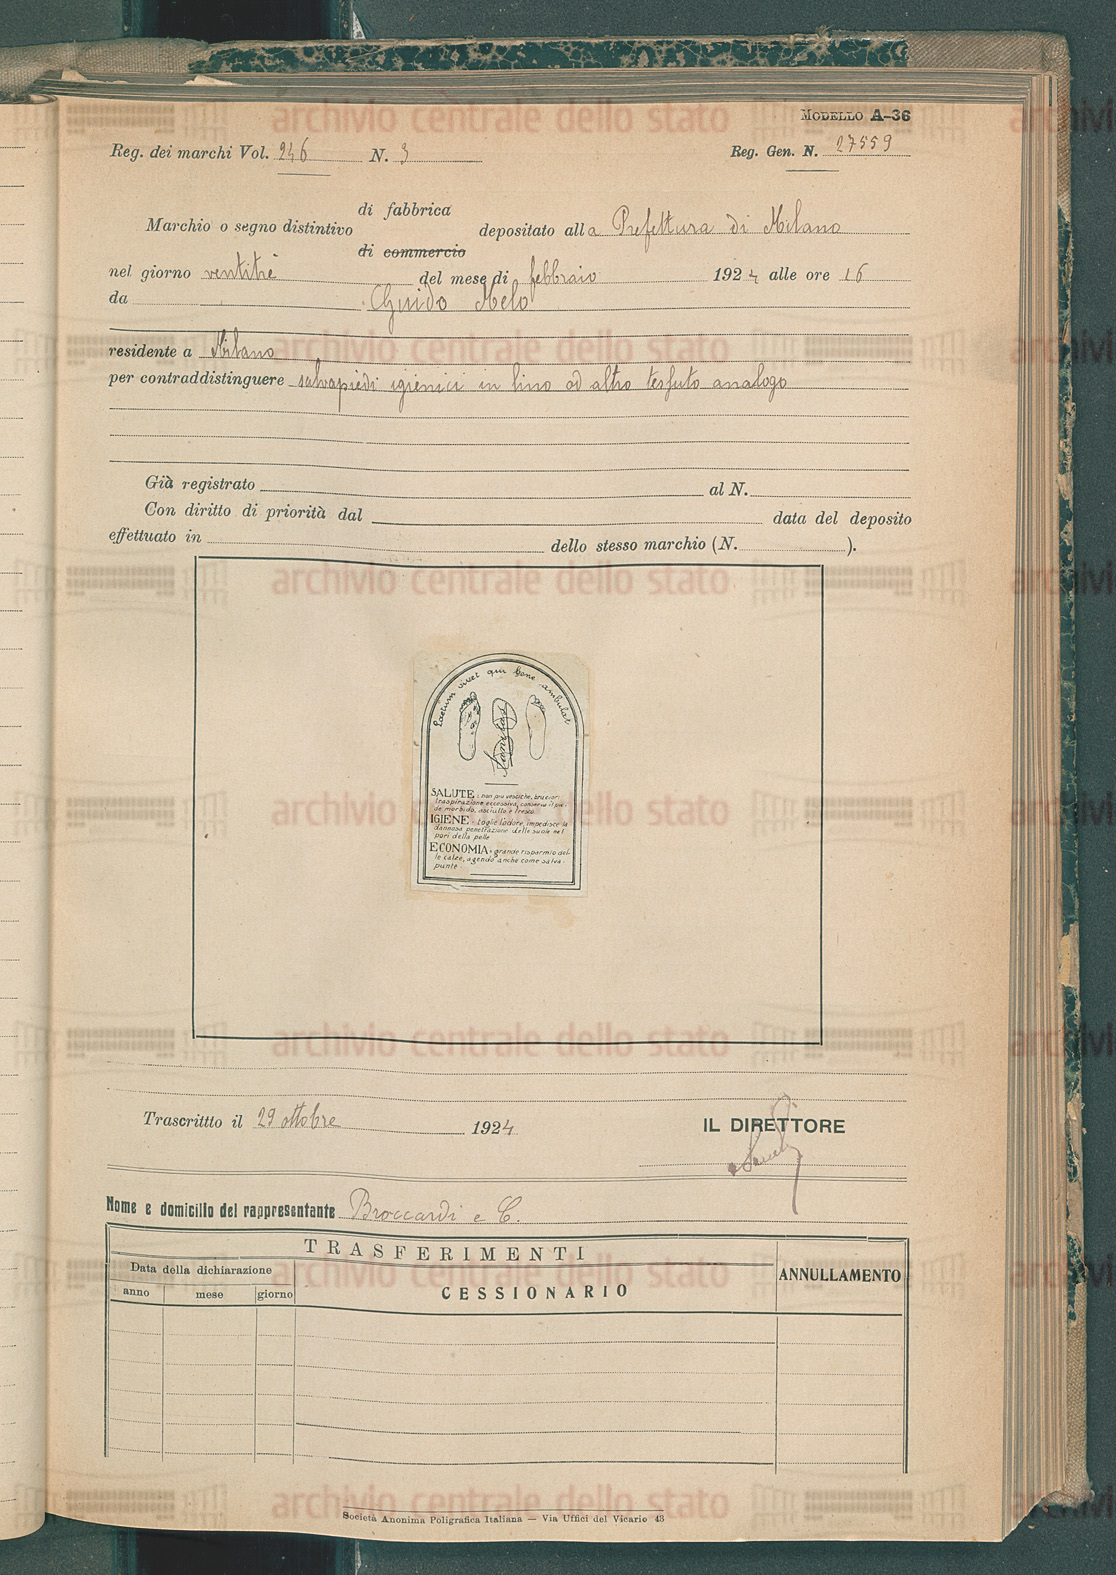 MODELLO A-36
Reg. dei marchi Vol. 246 N. 3 Reg. Gen. N. 27559
di fabbrica
Marchio o segno distintivo depositato alla Prefettura di Milano
di commercio
nel giorno ventitrè del mese di febbraio 1924 alle ore 16
da Guido Melo
residente a Milano
per contraddistinguere salvapiedi igienici in lino od altro tessuto analogo
Già registrato al N.
Con diritto di priorità dal data del deposito
effettuato in dello stesso marchio (N. ).
Laetum vivet qui bene ambulat
Sanitas
SALUTE: non più vesciche, bruciori
traspirazione eccessiva, conserva il pie-
de morbido, asciutto e fresco.
IGIENE: toglie l'odore, impedisce la
dannosa penetrazione delle suole nei
pori della pelle
ECONOMIA: grande risparmio del-
le calze, agendo anche come salva-
punte
Trascrittto il 29 ottobre 1924 IL DIRETTORE
Nome e domicilio del rappresentante Broccardi e C.
TRASFERIMENTI
Data della dichiarazione CESSIONARIO ANNULLAMENTO
anno mese giorno
Società Anonima Poligrafica Italiana — Via Uffici del Vicario 43
archivio centrale dello stato